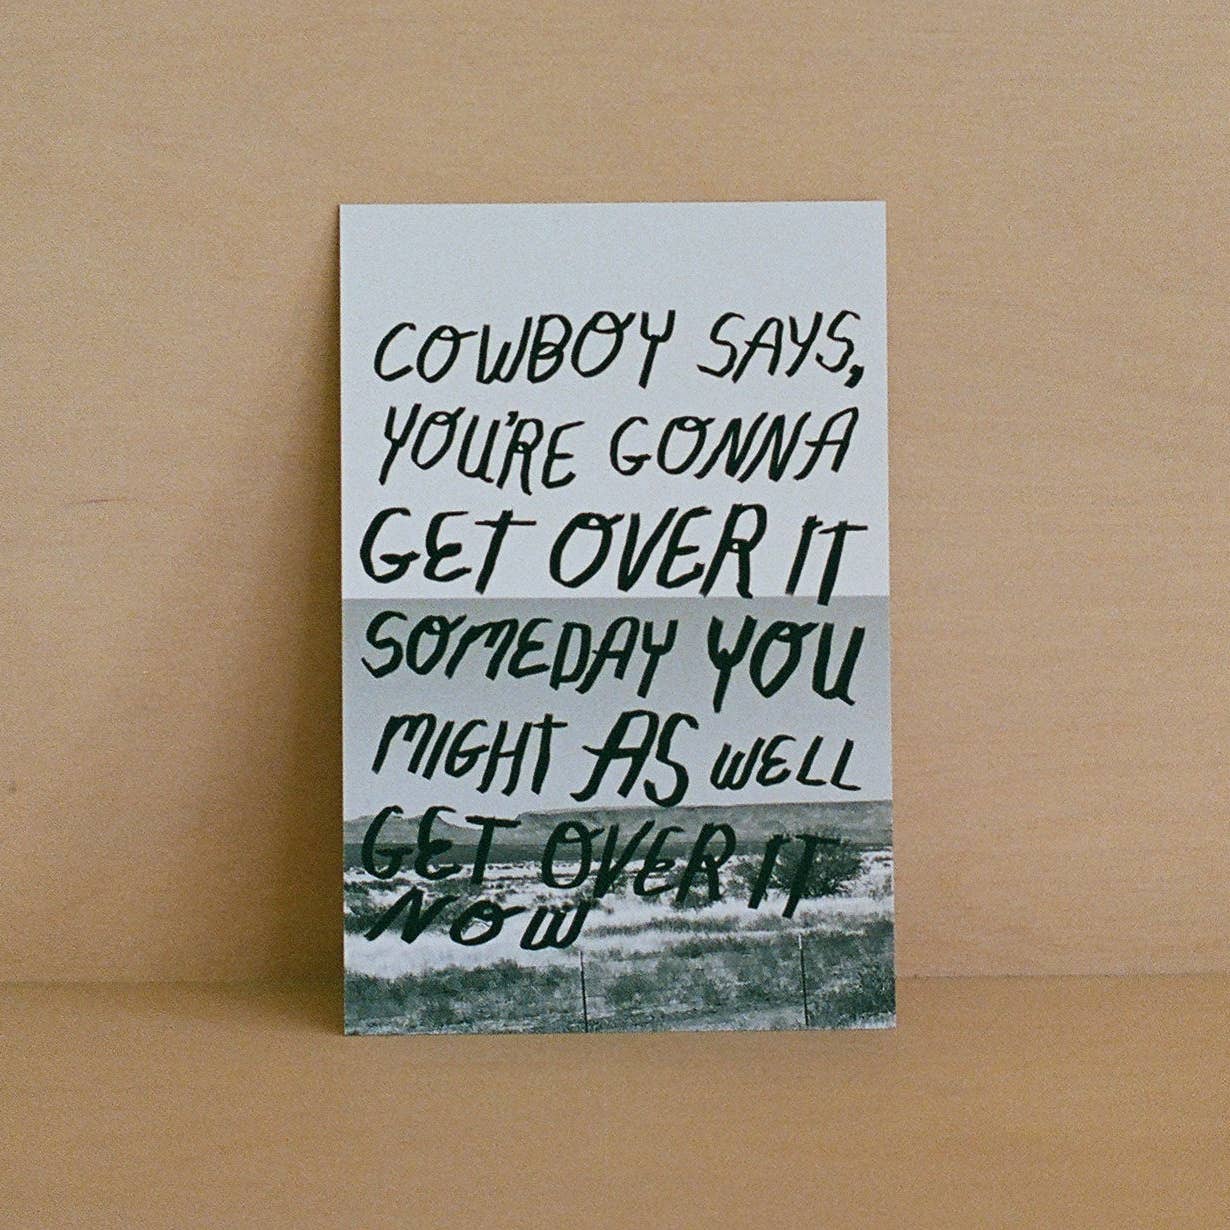 COWBOY SAYS,
YOU'RE GONNA
GET OVER IT
SOMEDAY YOU
MIGHT AS WELL
GET OVER IT
NOW